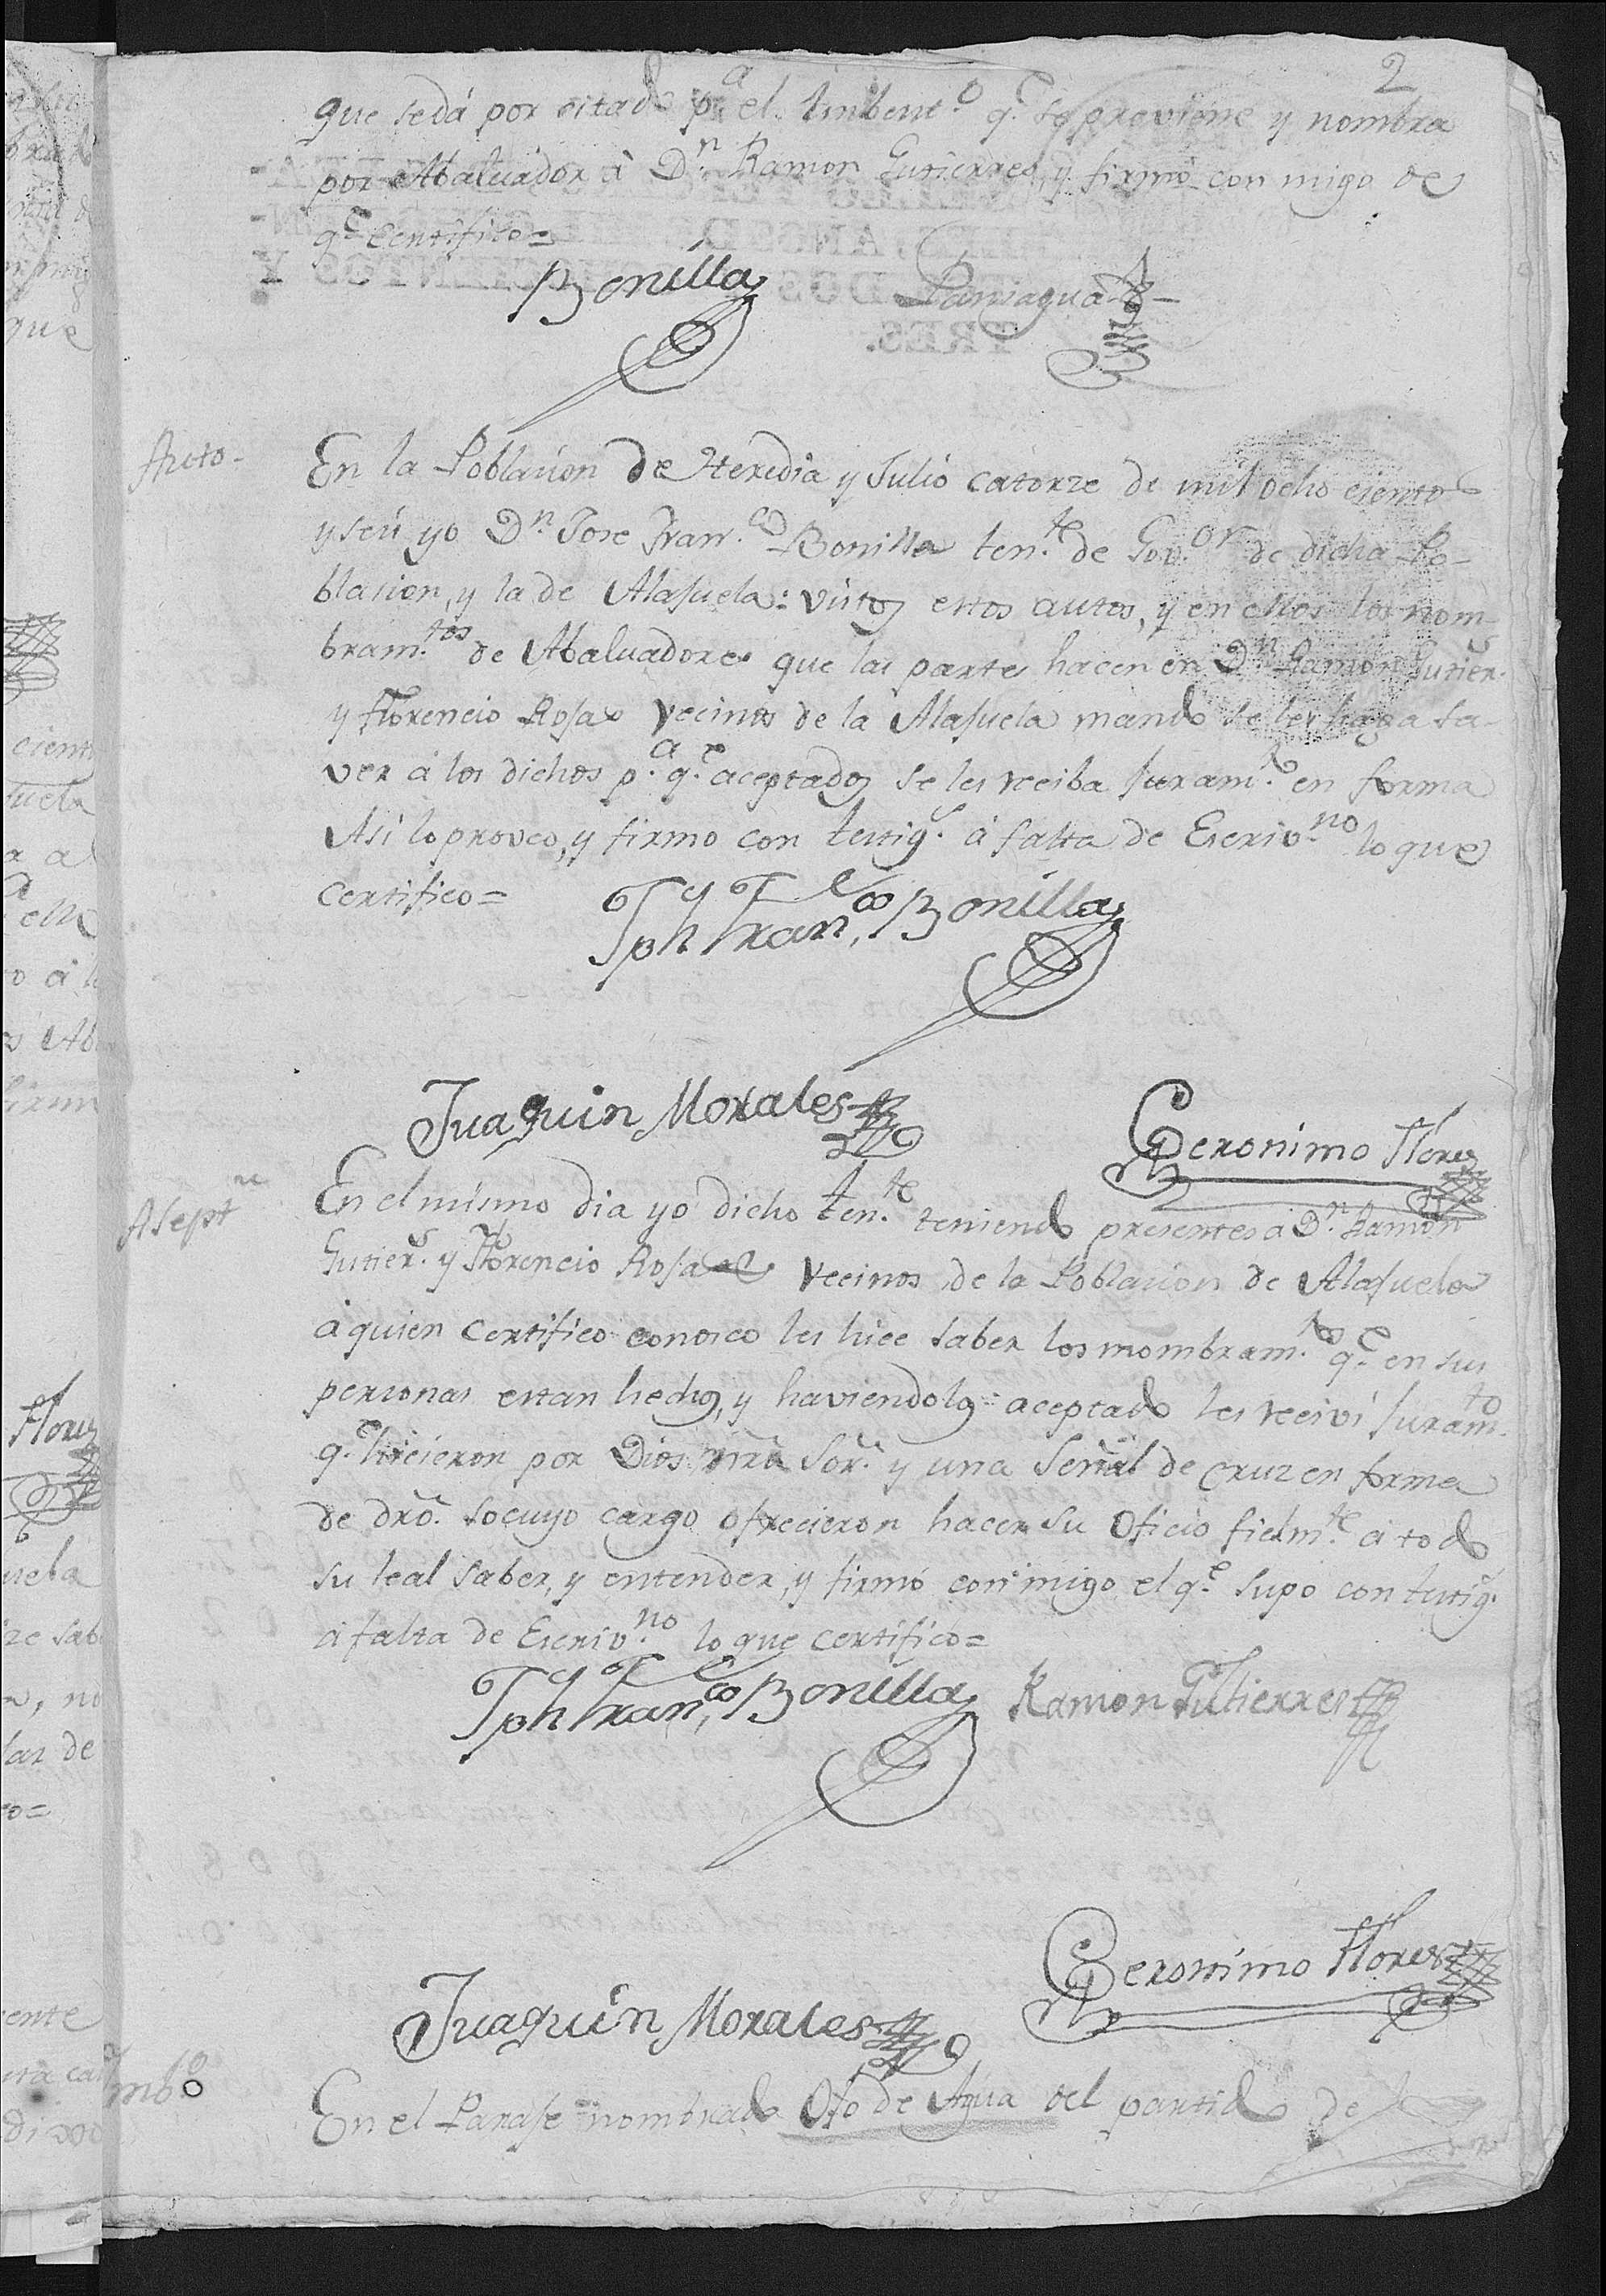 2
que se dá por citado p.a el Imbent.o q.e se previene y nombra
por Abaluador á D.n Ramon Gutierres, y firmó con migo de
q.e Certifico=
Bonilla Paniagua
Auto-
En la Poblasion de Heredia y Julio catorze de mil ocho ciento
y seis yo D.n Jose Fran.co Bonilla ten.te de Gov.or de dicha Po-
blasion, y la de Alajuela: vistos estos autos, y en ellos los nom-
bram.tos de Abaluadores que las partes hacen en D.n Ramon Gutier.s
y Florencio Rojas vecinos de la Alajuela mando se les haga sa-
ver á los dichos p.a q.e aceptados se les reciba juram.to en forma
Asi lo proveo, y firmo con testig.s á falta de Escriv.no lo que
certifico=
Jph Fran.co Bonilla
Juaquin Morales
Geronimo Flores
Asept.ne
En el mismo dia yo dicho ten.te teniendo presentes á D.n Ramon
Gutier.s y Florencio Rojas vecinos de la Poblasion de Alajuela
á quien certifico conosco les hice saber los nombram.to q.e en sus
personas estan hechos, y haviendolos aceptado les recivi juram.to
q.e hicieron por Dios nr̃o Sõr. y una señal de cruz en forma
de dr̃o. so cuyo cargo ofrecieron hacer su Oficio fielm.te á todo
su leal saber, y entender, y firmó con migo el q.e supo con testig.s
á falta de Escriv.no lo que certifico=
Jph Fran.co Bonilla Ramon Gutierres
Geronimo Flores
Juaquin Morales
Imb.o
En el Paraje nombrado Ojo de Agua del partido de